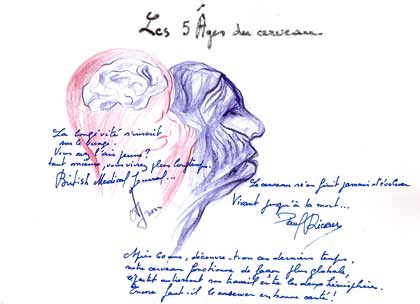 Les 5 Âges du cerveau
La longévité s'inscrit
sur le visage.
Vous avez l'air jeune?
tant mieux, vous vivrez plus longtemps.
British Medical Journal...
Le cerveau n'a finit jamais d'évoluer
Vivant jusqu'à la mort...
Paul Ricoeur
Après 60 ans, découvre-t-on ces derniers temps,
notre cerveau fonctionne de façon plus globale,
répartit autrement son travail entre les deux hémisphères.
Encore faut-il le conserver en bonne santé!